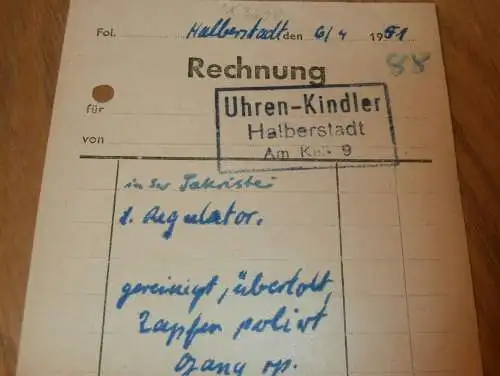 Fol. Halberstadt den 6/4 1951
88
Rechnung
für
von
Uhren-Kindler
Halberstadt
Am 9
in der Sakristei
1. Regulator.
gereinigt, überholt,
Zapfen poliert
Gang rp.